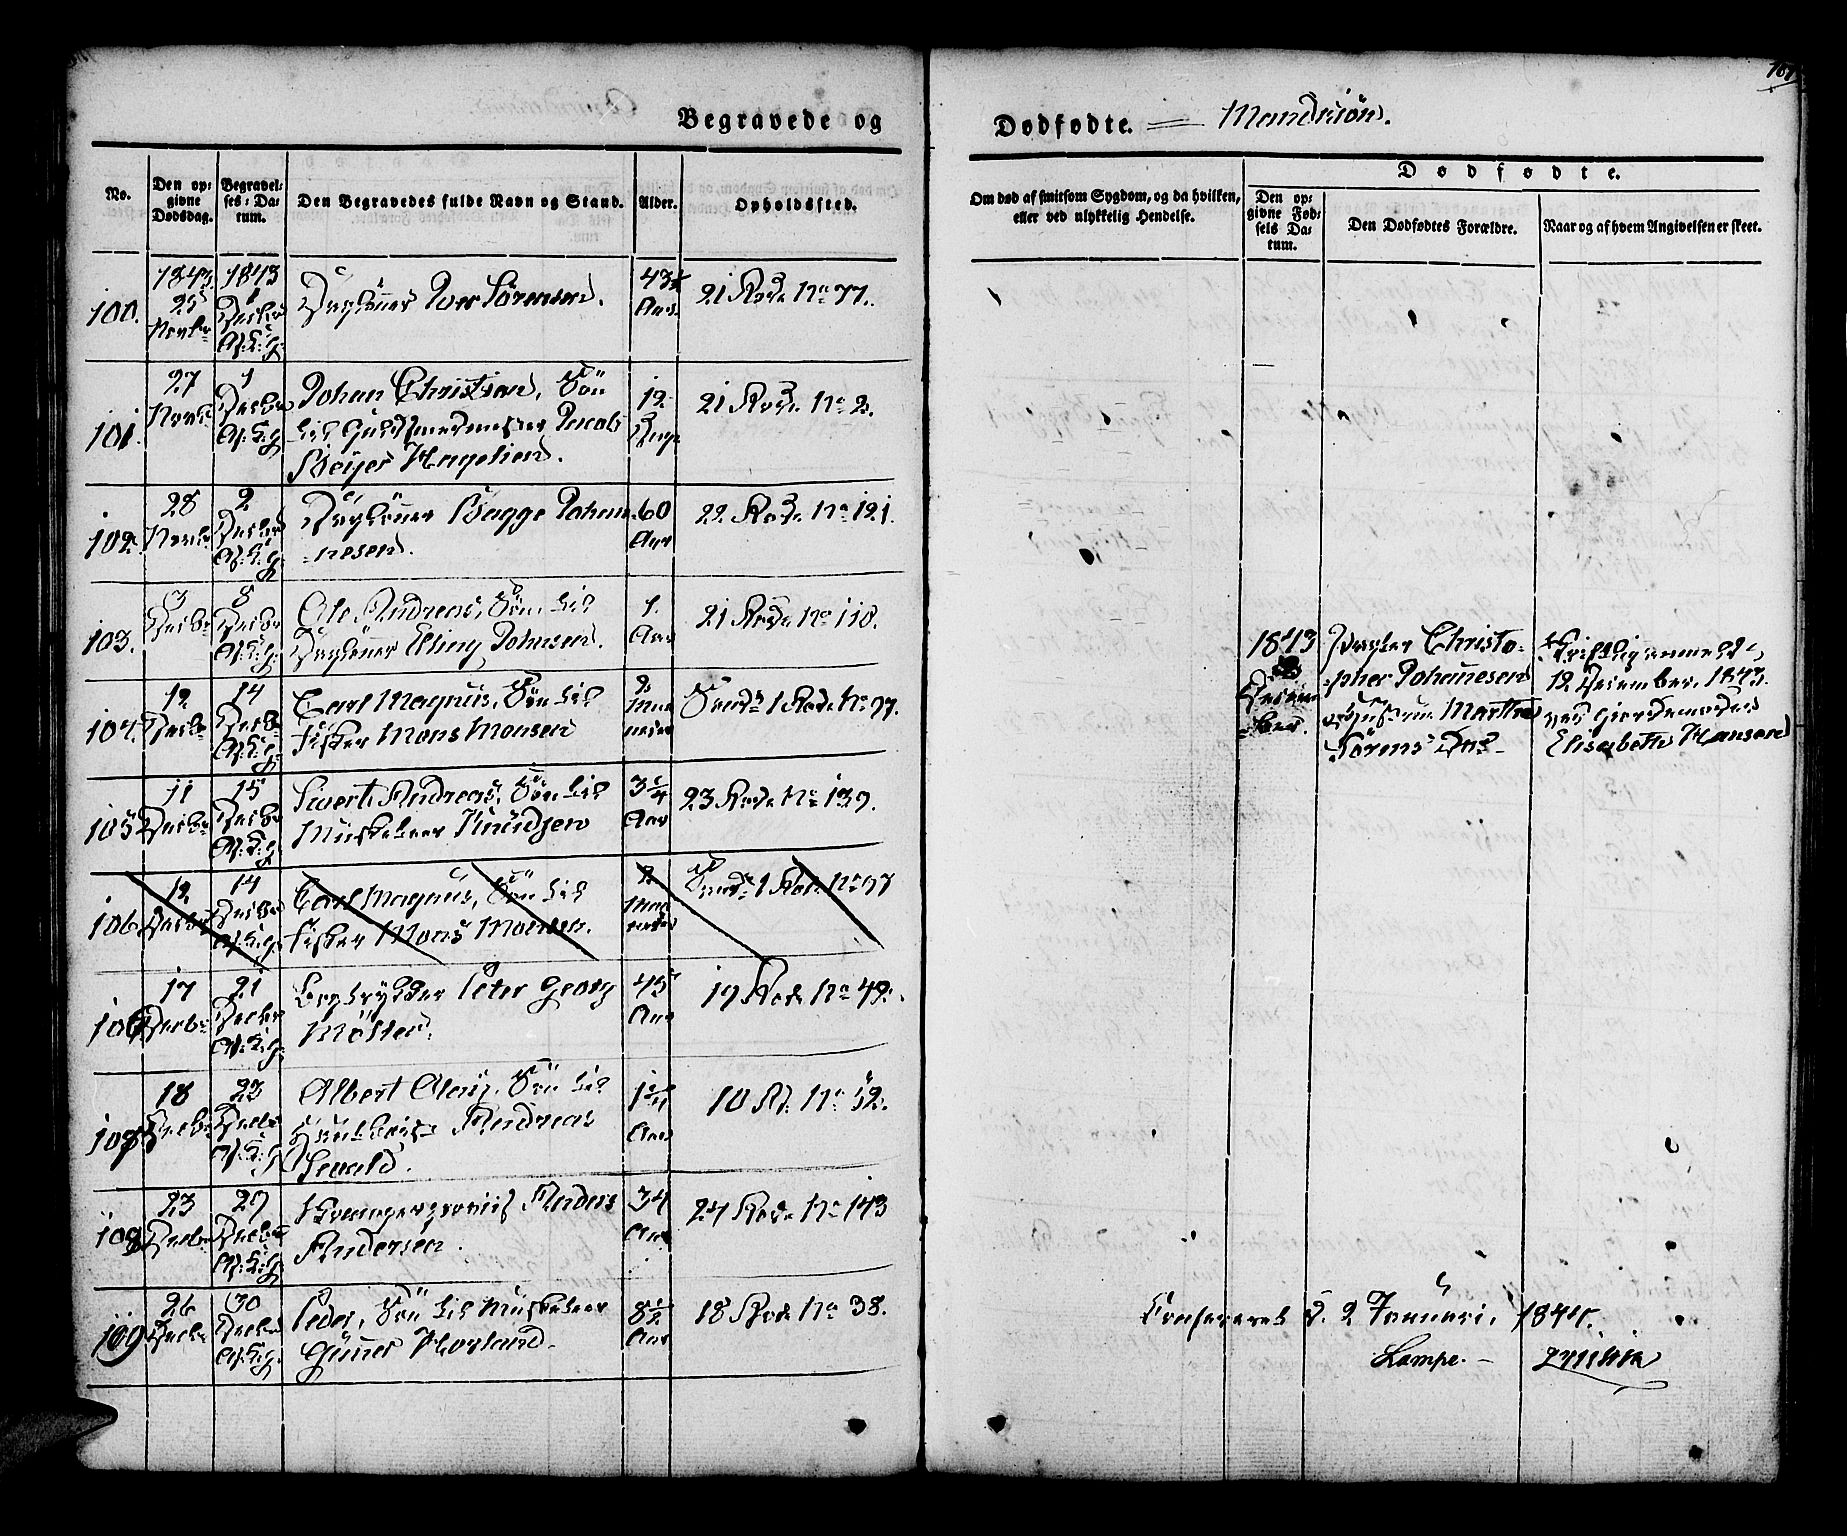 Begravede og
No.
Den op=
givne
Dødsdag.
Begravel=
ses=Da=
tum.
Den Begravedes fulde Navn og Stand.
Alder.
Opholdssted.
100.
1843.
25
Novbr
1843
1
Decbr
Daglønner Iver Sörensen.
43½
Aar.
21 Rode No 77.
101.
27
Novbr
1
Decbr
Johan Christian, Søn
til Guldsmedmester Jacob
Beÿer Hagelien.
12
Dage
21 Rode No 2.
102.
28
Novbr
2
Decbr
Daglønner Bagge Johan-
nesen.
60
Aar
22 Rode No 121.
103.
3
Decbr
8
Decbr
Ole Andreas, Søn til
Daglønner Elling Johnsen.
1.
Aar
21 Rode No 110.
104.
12
Decbr
14
Decbr
Carl Magnus, Søn til
Fisker Mons Monsen
2
Maa
neder
Sandv 1 Rode No 97.
105
11
Decbr
15
Decbr
Sivert Andreas, Søn til
Musketeer Knudsen
3¼
Aar
23 Rode No 139.
106
12
Decbr
14
Decbr
Carl Magnus, Søn til
Fisker Mons Monsen.
2
Maa
neder
Sandv 1 Rode No 97
106
17
Decbr
21
Decbr
Bogtrykker Peter Georg
Möller.
45
Aar
19 Rode No 49.
107
18
Decbr
22
Decbr
Albert Olaus, Søn til
Andreas
Sevald.
Aar
10 R. No 12.
108
23
Decbr
27
Decbr
Anders
Andersen.
34
Aar
24 Rode No 143
109
26
Decbr
30
Decbr
Peder, Søn til Musketeer
Gunner Hovland.
8½
Aar
18 Rode No 38.
Dødfødte. = Mandkiøn.
Om død af smitsom Sygdom, og da hvilken,
eller ved ulykkelig Hendelse.
Dødfødte.
Den op=
givne Fød=
sels Da=
tum.
Den Dødfødtes Forældre.
Naar og af hvem Angivelsen er skeet.
1843
Decem-
ber.
Christo-
pher Johannesen
Hustrue Marthe
Sörens Dat-
Skriftlig anmeldt
12 December 1843.
ved Giordemoder
Elisabeth Hansen
Confereret d. 2 Januari 1844.
Lampe.